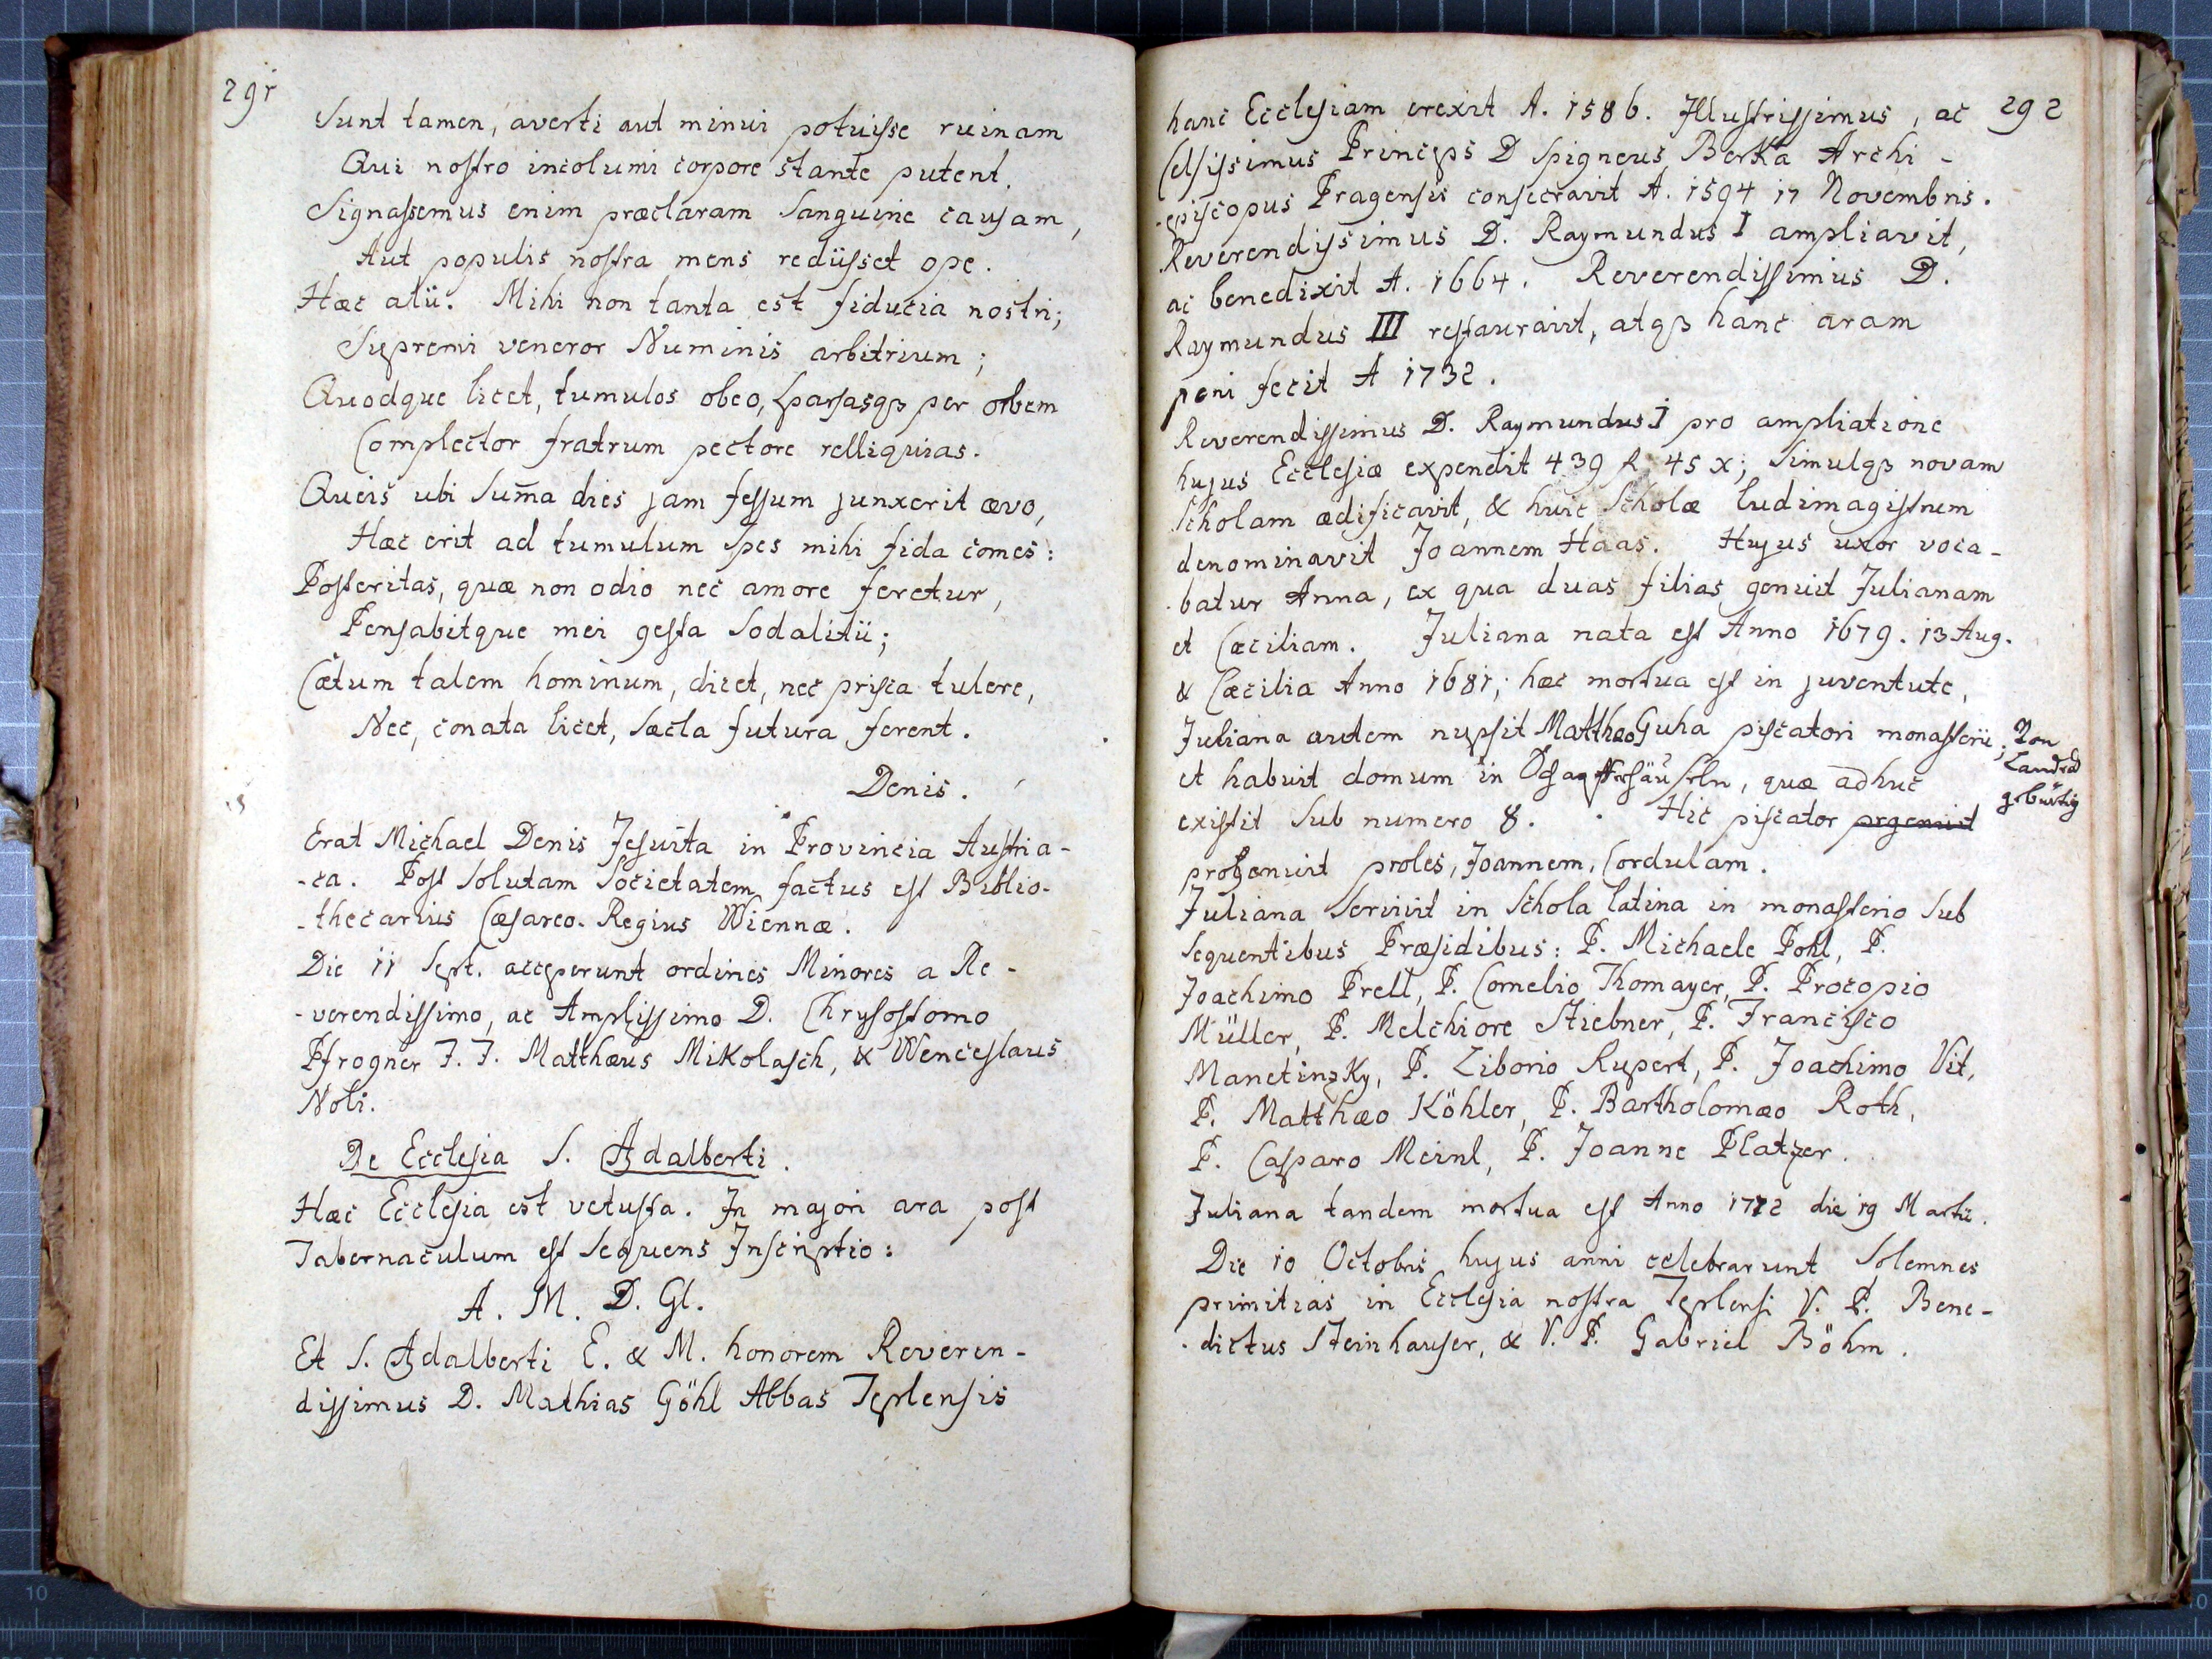 291
Sunt tamen, averti aut minui potuisse ruinam
Qui nostro incolumi corpore stante putent.
Signassemus enim præclaram sanguine causam,
Aut populis nostra mens rediisset ope.
Hæc alii. Mihi non tanta est fiducia nostri;
Supremi veneror Numinis arbitrium;
Quodque licet, tumulos obeo, sparsasqȝ per orbem
Complector fratrum pectore relliquias.
Queis ubi sum̄a dies jam fessum junxerit ævo,
Hæc erit ad tumulum spes mihi fida comes:
Posteritas, quæ non odio nec amore feretur,
Pensabitque mei gesta Sodalitii;
Cœtum talem hominum, dicet, nec prisca tulere,
Nec, conata licet, sæcla futura ferent.
Denis.
Erat Michael Denis Jesuita in Provincia Austria-
-ca. Post solutam Societatem factus est Biblio-
-thecarius Cæsareo-Regius Wiennæ.
Die 11 Sept. acceperunt ordines Minores a Re-
-verendissimo, ac Amplissimo D. Chrysostomo
Pfrogner F. F. Matthæus Mikolasch, & Wenceslaus
Noli.
De Ecclesia S. Adalberti.
Hæc Ecclesia est vetusta. In majori ara post
Tabernaculum est sequens Inscriptio:
A. M. D. Gl.
Et S. Adalberti E. & M. honorem Reveren-
dissimus D. Mathias Göhl Abbas Teplensis
292
hanc Ecclesiam erexit A. 1586. Illustrissimus, ac
Celsissimus Princeps D Spigneus Berka Archi-
-episcopus Pragensis consecravit A. 1594 17 Novembris.
Reverendissimus D. Raymundus I ampliavit,
ac benedixit A. 1664. Reverendissimus D.
Raymundus III restauravit, atqȝ hanc aram
poni fecit A 1732.
Reverendissimus D. Raymundus I pro ampliatione
hujus Ecclesiæ expendit 439 fl. 45 x; simulqȝ novam
Scholam ædificavit, & huic Scholæ ludimagistrum
denominavit Joannem Haas. Hujus uxor voca-
-batur Anna, ex qua duas filias genuit Julianam
et Cæciliam. Juliana nata est Anno 1679. 13 Aug.
& Cæcilia Anno 1681; hæc mortua est in juventute,
Juliana autem nupsit Matthæo Guha piscatori monasterii;
Von
Landed
gebürtig
et habuit domum in , quæ adhuc
existit sub numero 8. Hic piscator prgenuit
progenuit proles, Joannem, Cordulam.
Juliana servivit in Schola latina in monasterio sub
sequentibus Præsidibus: P. Michaele Pohl, P.
Joachimo Prell, P. Cornelio Thomayer, P. Procopio
Müller, P. Melchiore Stiebner, P. Francisco
Manetinzky, P. Liborio Rupert, P. Joachimo Vit,
P. Matthæo Köhler, P. Bartholomæo Roth,
P. Casparo Meinl, P. Joanne Platzer.
Juliana tandem mortua est Anno 1772 die 19 Martii.
Die 10 Octobris hujus anni celebrarunt solemnes
primitias in Ecclesia nostra Teplensi V. P. Bene-
-dictus Steinhauser, & V. P. Gabriel Böhm.
10